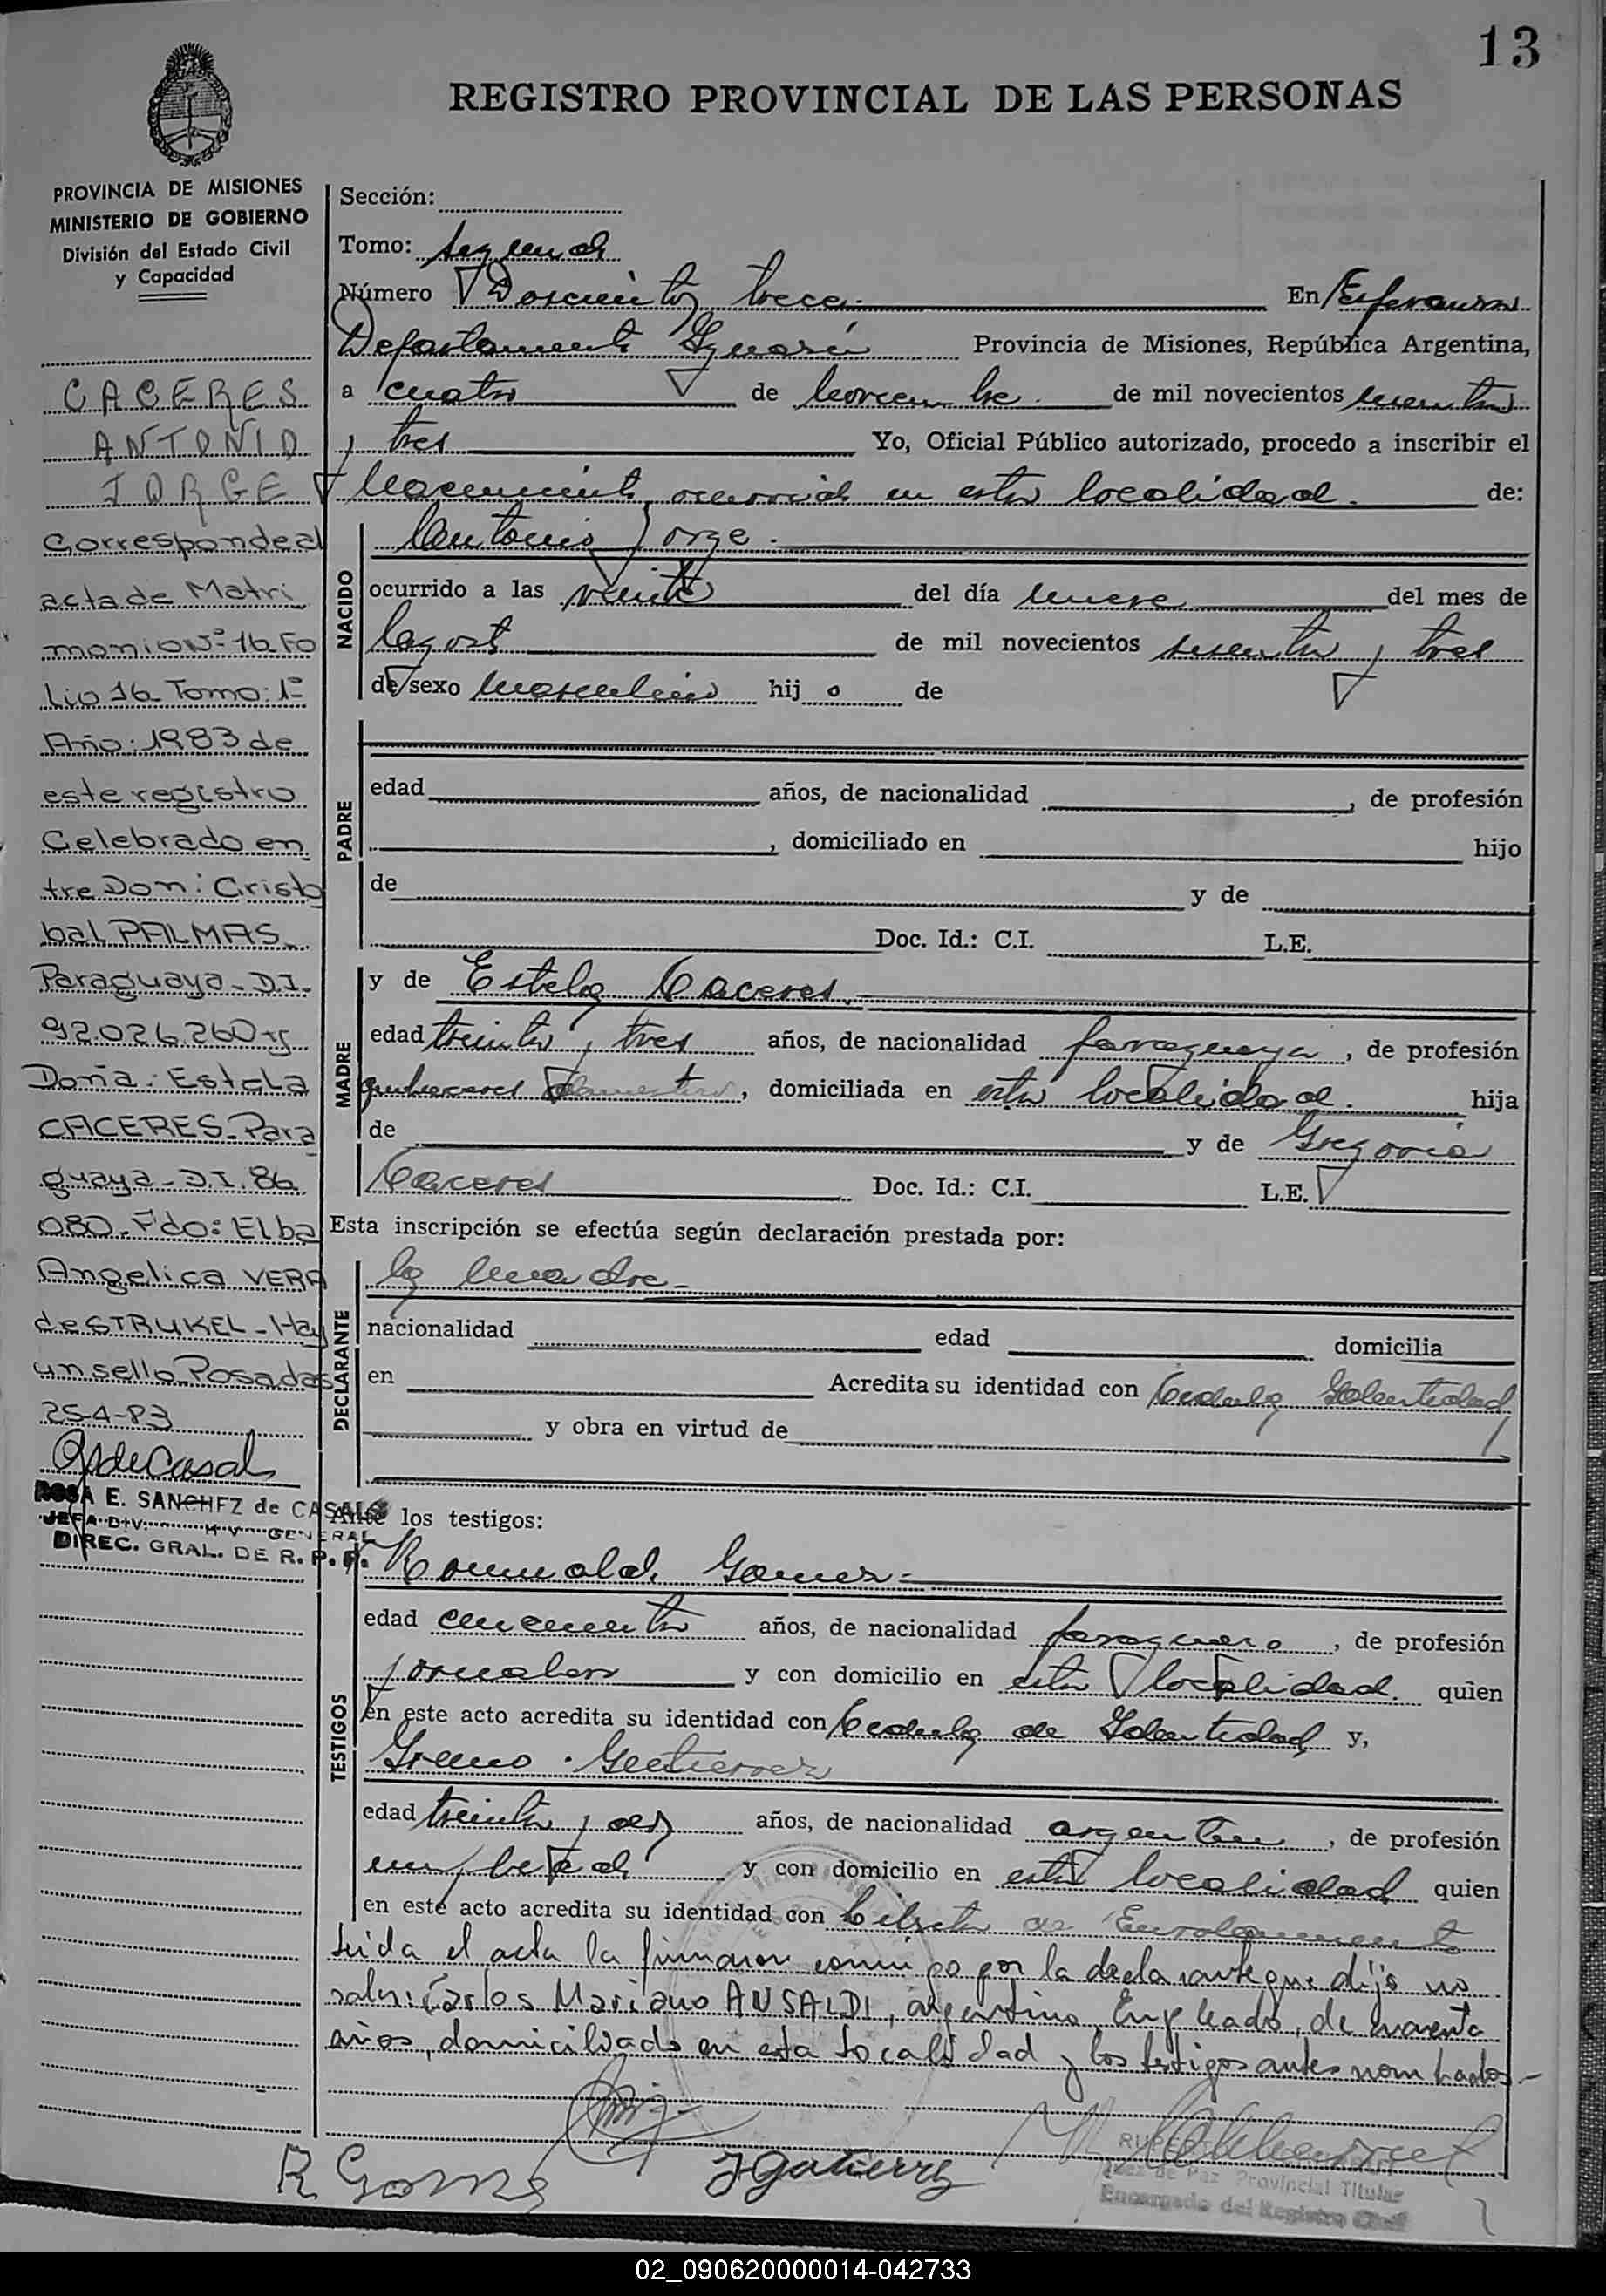 13
REGISTRO PROVINCIAL DE LAS PERSONAS
PROVINCIA DE MISIONES
MINISTERIO DE GOBIERNO
División del Estado Civil
y Capacidad
CACERES
ANTONIO
JORGE
Corresponde al
acta de Matri
monio Nº 16 Fo
lio 16 Tomo: 1º
Año: 1983 de
este registro
Celebrado en
tre Don: Cristo
bal PALMAS
Paraguaya - D.I.
92.026.260 y
Doña: Estela
CACERES - Para
guaya - D.I. 86
080. Fdo: Elba
Angelica VERA
de STRUKEL - Hay
un sello Posadas
25-4-83
ROSA E. SANCHEZ de CASALS
JEFA DIV. GENERAL
DIREC. GRAL. DE R. P. P.
Sección:
Tomo: Segundo
Número Doscientos trece. En Esperanza
Departamento Iguazú Provincia de Misiones, República Argentina,
a cuatro de de mil novecientos
y tres Yo, Oficial Público autorizado, procedo a inscribir el
Nacimiento ocurrido en esta localidad. de:
NACIDO
Antonio Jorge.
ocurrido a las veinte del día nueve del mes de
Agosto de mil novecientos sesenta y tres
de sexo masculino hij o de
PADRE
edad años, de nacionalidad , de profesión
, domiciliado en hijo
de y de
Doc. Id.: C.I. L.E.
MADRE
y de Estela Caceres.
edad treinta y tres años, de nacionalidad paraguaya, de profesión
quehaceres domesticos, domiciliada en esta localidad. hija
de y de Gregoria
Caceres Doc. Id.: C.I. L.E.
Esta inscripción se efectúa según declaración prestada por:
DECLARANTE
la madre
nacionalidad edad domicilia
en Acredita su identidad con Cedula Identidad
y obra en virtud de
Ante los testigos:
TESTIGOS
Romualdo Gomez
edad cincuenta años, de nacionalidad paraguayo, de profesión
jornalero y con domicilio en esta localidad. quien
en este acto acredita su identidad con Cedula de Identidad y,
Ireneo Gutierrez
edad treinta y dos años, de nacionalidad argentino, de profesión
empleado y con domicilio en esta localidad quien
en este acto acredita su identidad con Libreta de Enrolamiento
Leida el acta la firmaron conmigo por la declarante que dijo no
saber: Carlos Mariano ANSALDI, argentino, Empleado, de
años, domiciliado en esta Localidad y los testigos antes nombrados.-
R Gomez
J Gutierrez
Juez de Paz Provincial Titular
Encargado del Registro Civil
02_090620000014-042733